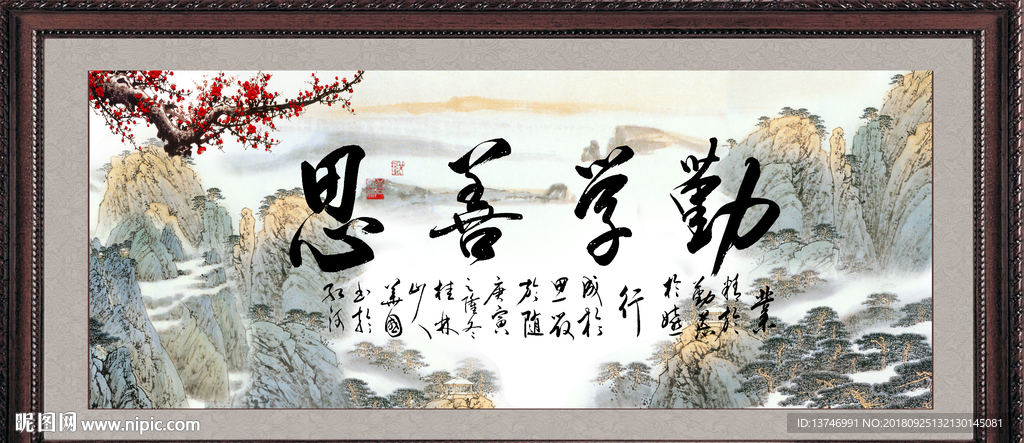 勤学善思
業
精於
勤荒
於嬉
行
成於
思毁
於随
庚寅
之隆冬
桂林
山人
華國
书於
昵图网 www.nipic.com
ID:13746991 NO:20180925132130145081